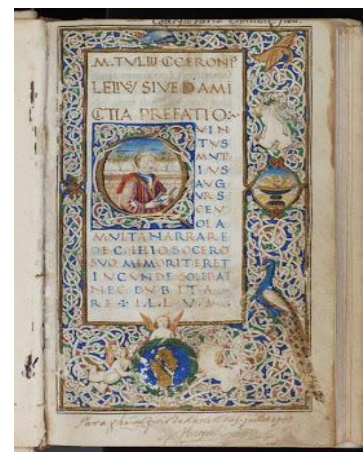 M. TVLII CCERONIS
LELIVS SIVE D AMI
CTIA PREFATIO
VIN
TVS
MVT
IVS
AVG
VRS
CEV
OLA
MVLTA NARRARE
DE C LELIO SOCERO
SVO MEMORITER ET
IVCVNDE SOLEBAT
NEC DVBITA
RE ILLVM